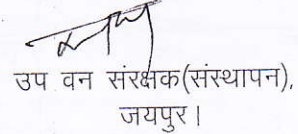 उप वन संरक्षक(संस्थापन),
जयपुर।